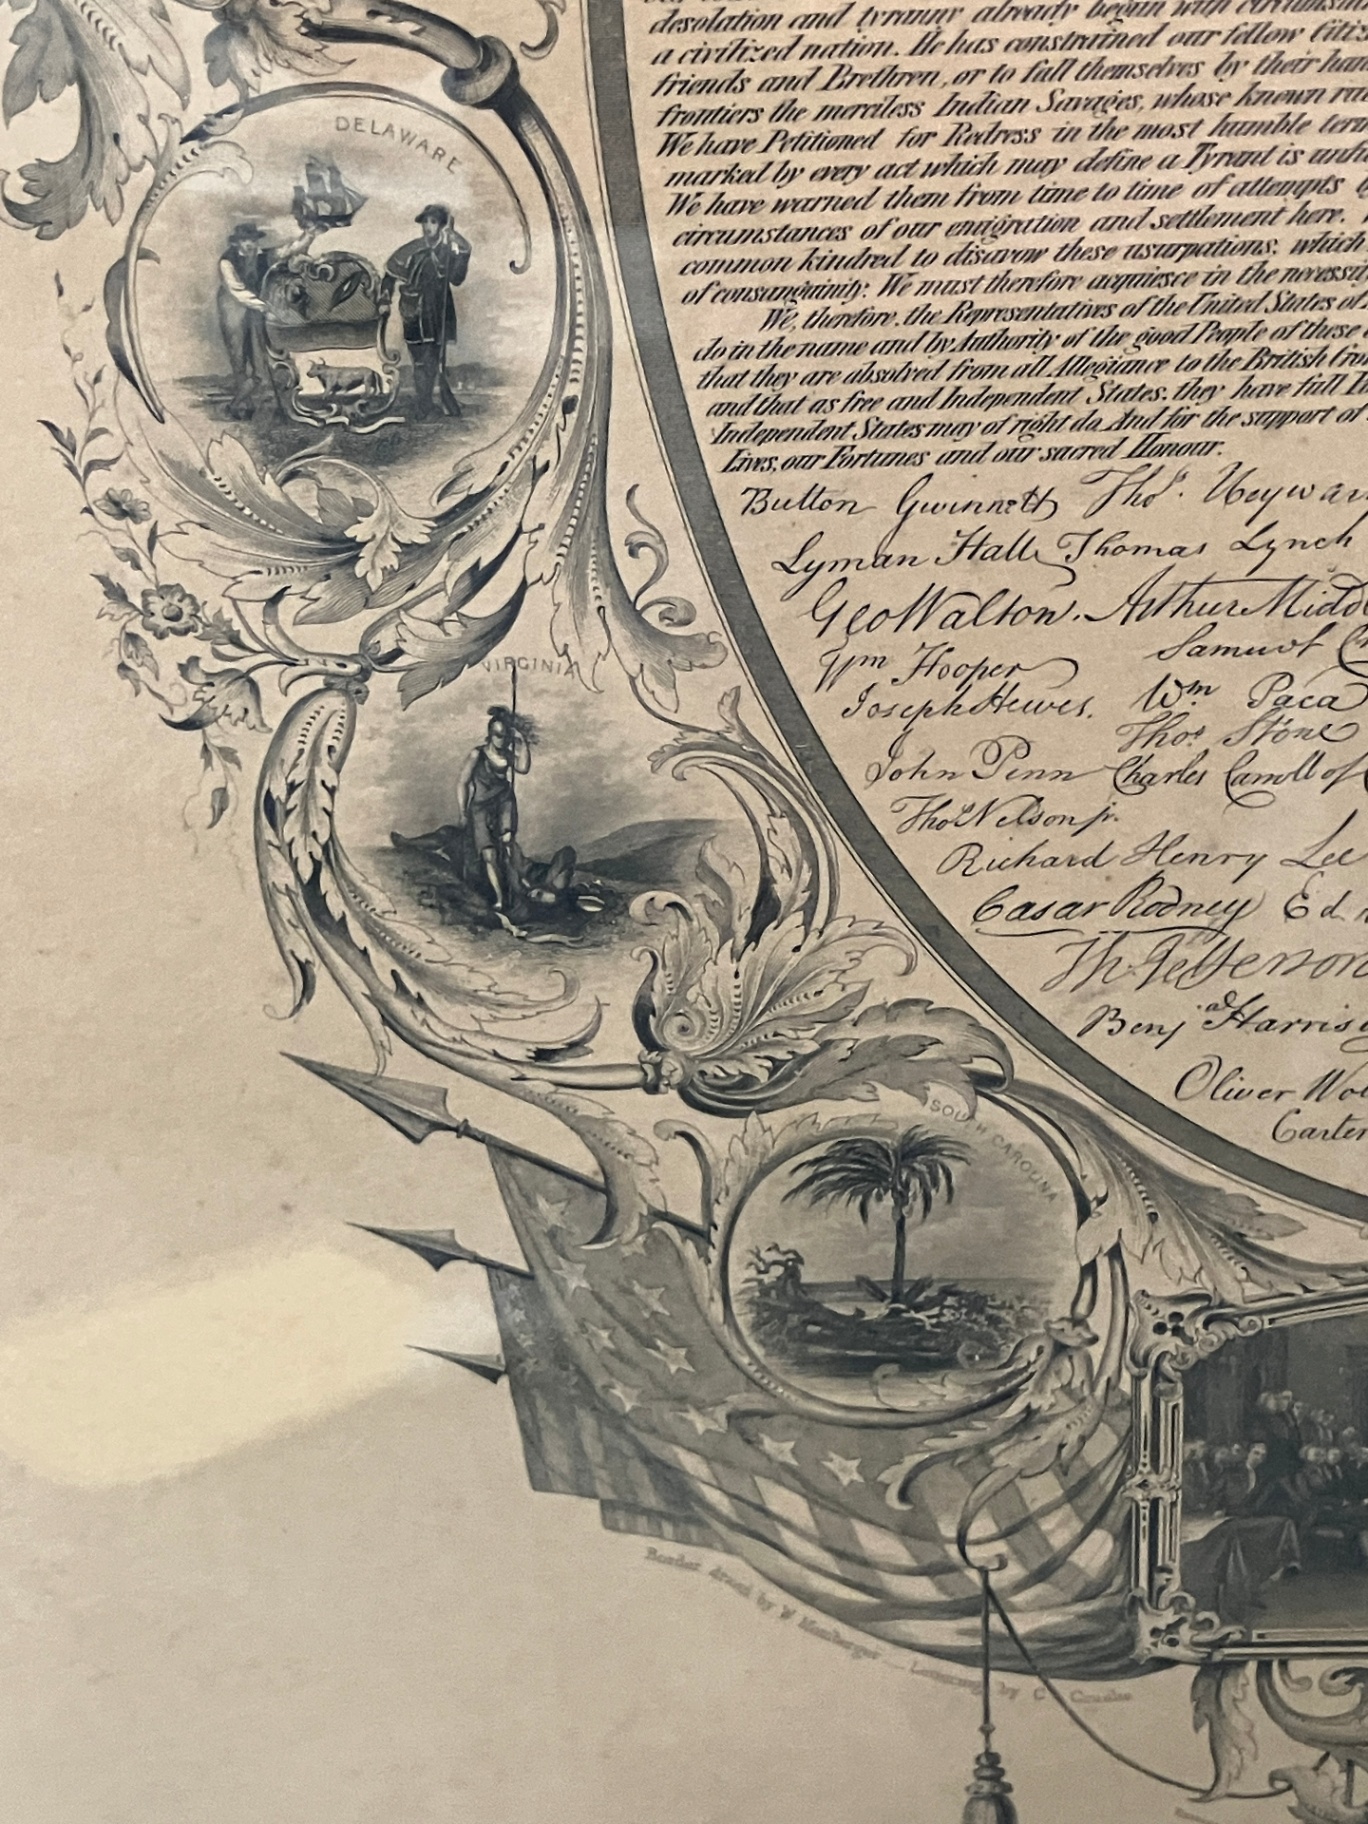 desolation and tyranny already begun with
a civilized nation. He has constrained our fellow
friends and Brethren, or to fall themselves by their
frontiers the merciless Indian Savages, whose known
We have Petitioned for Redress in the most humble
marked by every act which may define a Tyrant is
We have warned them from time to time of attempts
circumstances of our emigration and settlement here.
common kindred to disavow these usurpations, which
of consanguinity: We must therefore acquiesce in the
We, therefore, the Representatives of the United States of
do in the name and by Authority of the good People of these
that they are absolved from all Allegiance to the British
and that as free and Independent States, they have full
Independent States may of right do. And for the support of
Lives, our Fortunes and our sacred Honour.
Button Gwinnett Thos. Heywar
Lyman Hall Thomas Lynch
Geo Walton. Arthur Midd
Wm Hooper Samuel
Joseph Hewes. Wm Paca
Thos Stone
John Penn Charles Carroll of
Thos Nelson jr.
Richard Henry Lee
Cæsar Rodney Ed
Th Jefferson
Benja Harris
Oliver Wol
Carter
DELAWARE
VIRGINIA
SOUTH CAROLINA
Border by W by C